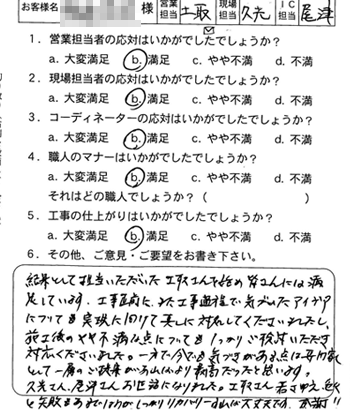 お客様名 様 営業担当 土取 現場担当 久光 IC担当 尾津
1．営業担当者の応対はいかがでしたでしょうか？
a. 大変満足 b. 満足 c. やや不満 d. 不満
2．現場担当者の応対はいかがでしたでしょうか？
a. 大変満足 b. 満足 c. やや不満 d. 不満
3．コーディネーターの応対はいかがでしたでしょうか？
a. 大変満足 b. 満足 c. やや不満 d. 不満
4．職人のマナーはいかがでしたでしょうか？
a. 大変満足 b. 満足 c. やや不満 d. 不満
それはどの職人でしょうか？（ ）
5．工事の仕上がりはいかがでしたでしょうか？
a. 大変満足 b. 満足 c. やや不満 d. 不満
6．その他、ご意見・ご要望をお書き下さい。
結果として担当いただいた 土取さんを始め皆さんには満
足しています。工事前に、また工事過程で気づいたアイデア
についても実現に向けて真しに対応してくださいましたし、
施工後のやや不満な点についてもしっかりご検討いただき
対応くださいました。一方で今でも気づきがある点は専門家
として一層のご提案があればより最高だったと思います。
さん、尾津さんお世話になりました。土取さん
と失敗もあるけどしっかりリカバリーすれば大丈夫です。感謝!!